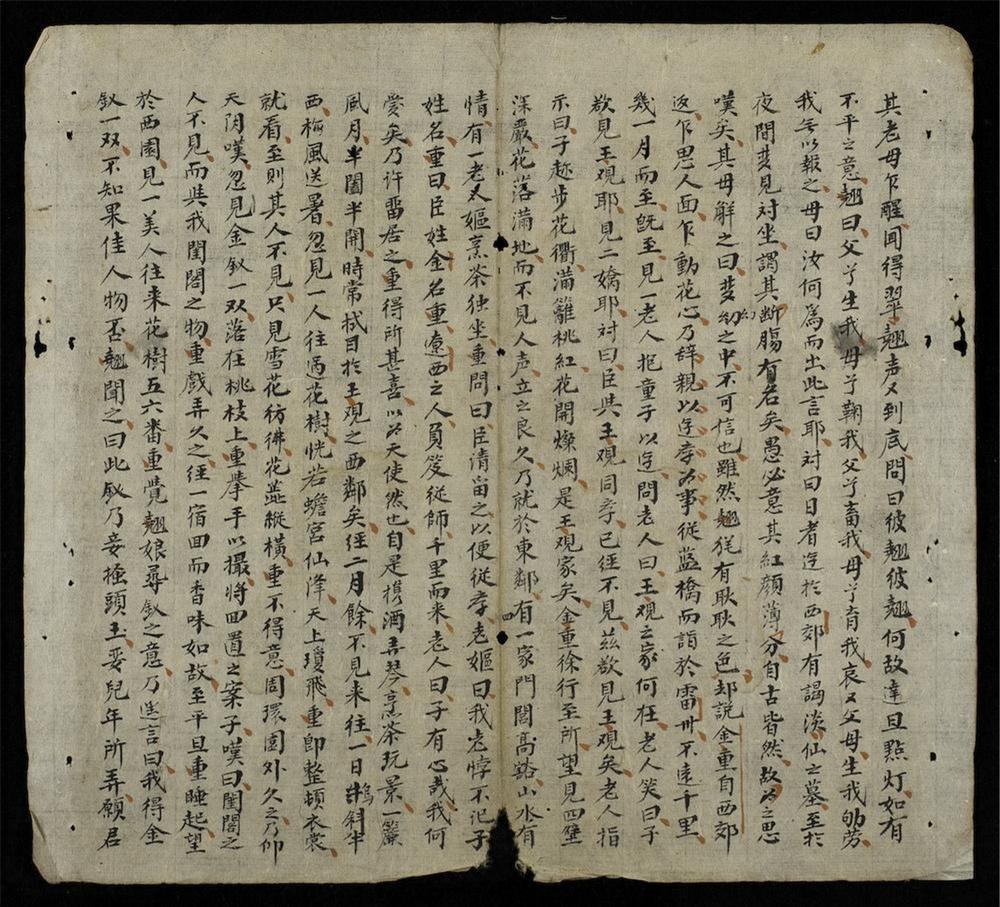 其老母乍醒聞得翠翹声又到底問曰彼翹彼翹何故達旦點灯如有
不平之意翹曰父兮生我母兮鞠我父兮畜我母兮育我哀又父母生我劬劳
我無以報之母曰汝何為而出此言耶対曰日者迄於西郊有謁淡仙之墓至於
夜間梦見対坐謂其断腸有名矣愚必意其紅顔薄分自古皆然故为之思
嘆矣其母解之曰梦幻之中不可信也雖然翹犹有耿耿之色却説金重自西郊
返乍思人面乍動花心乃辞親以迄孝为事從蓝橋而詣於雷州不遠千里
幾一月而至既至見一老人抱童子以迄問老人曰王观之家何在老人笑曰子
欲見王观耶見二嬌耶対曰臣與王观同孝已经不見兹欲見王观矣老人指
示曰子趂步花衢滿籬桃紅花開燦爛是王观家矣金重徐行至所望見四壁
深嚴花落滿地而不見人声立之良久乃就於東鄰有一家門閭高谿山水有
情有一老太嫗烹茶独坐重問曰臣清留之以便從孝老嫗曰我老悖不记子
姓名重曰臣姓金名重遼西之人負笈從師千里而来老人曰子有心哉我何
愛矣乃许留居之重得所甚喜以为天使然也自是携酒弄琴烹茶玩景一簾
風月半闔半開時常拭目於王观之西鄰矣经二月餘不見来往一日烏斜半
西梅風送暑忽見一人往過花樹恍若蟾宮仙降天上瓊飛重卽整頓衣裳
就看至則其人不見只見雪花彷彿花蕊縱橫重不得意周環園外久之乃仰
天阴嘆忽見金釵一双落在桃枝上重擧手以撮将囬置之案子嘆曰閨閣之
人不見而與我閨閤之物重戲弄久之径一宿囬而香味如故至平旦重睡起望
於西園見一美人往来花樹五六番重覺翹娘尋釵之意乃迄言曰我得金
釵一双不知果佳人物否翹聞之曰此釵乃妾搔頭玉妾兒年所弄願君